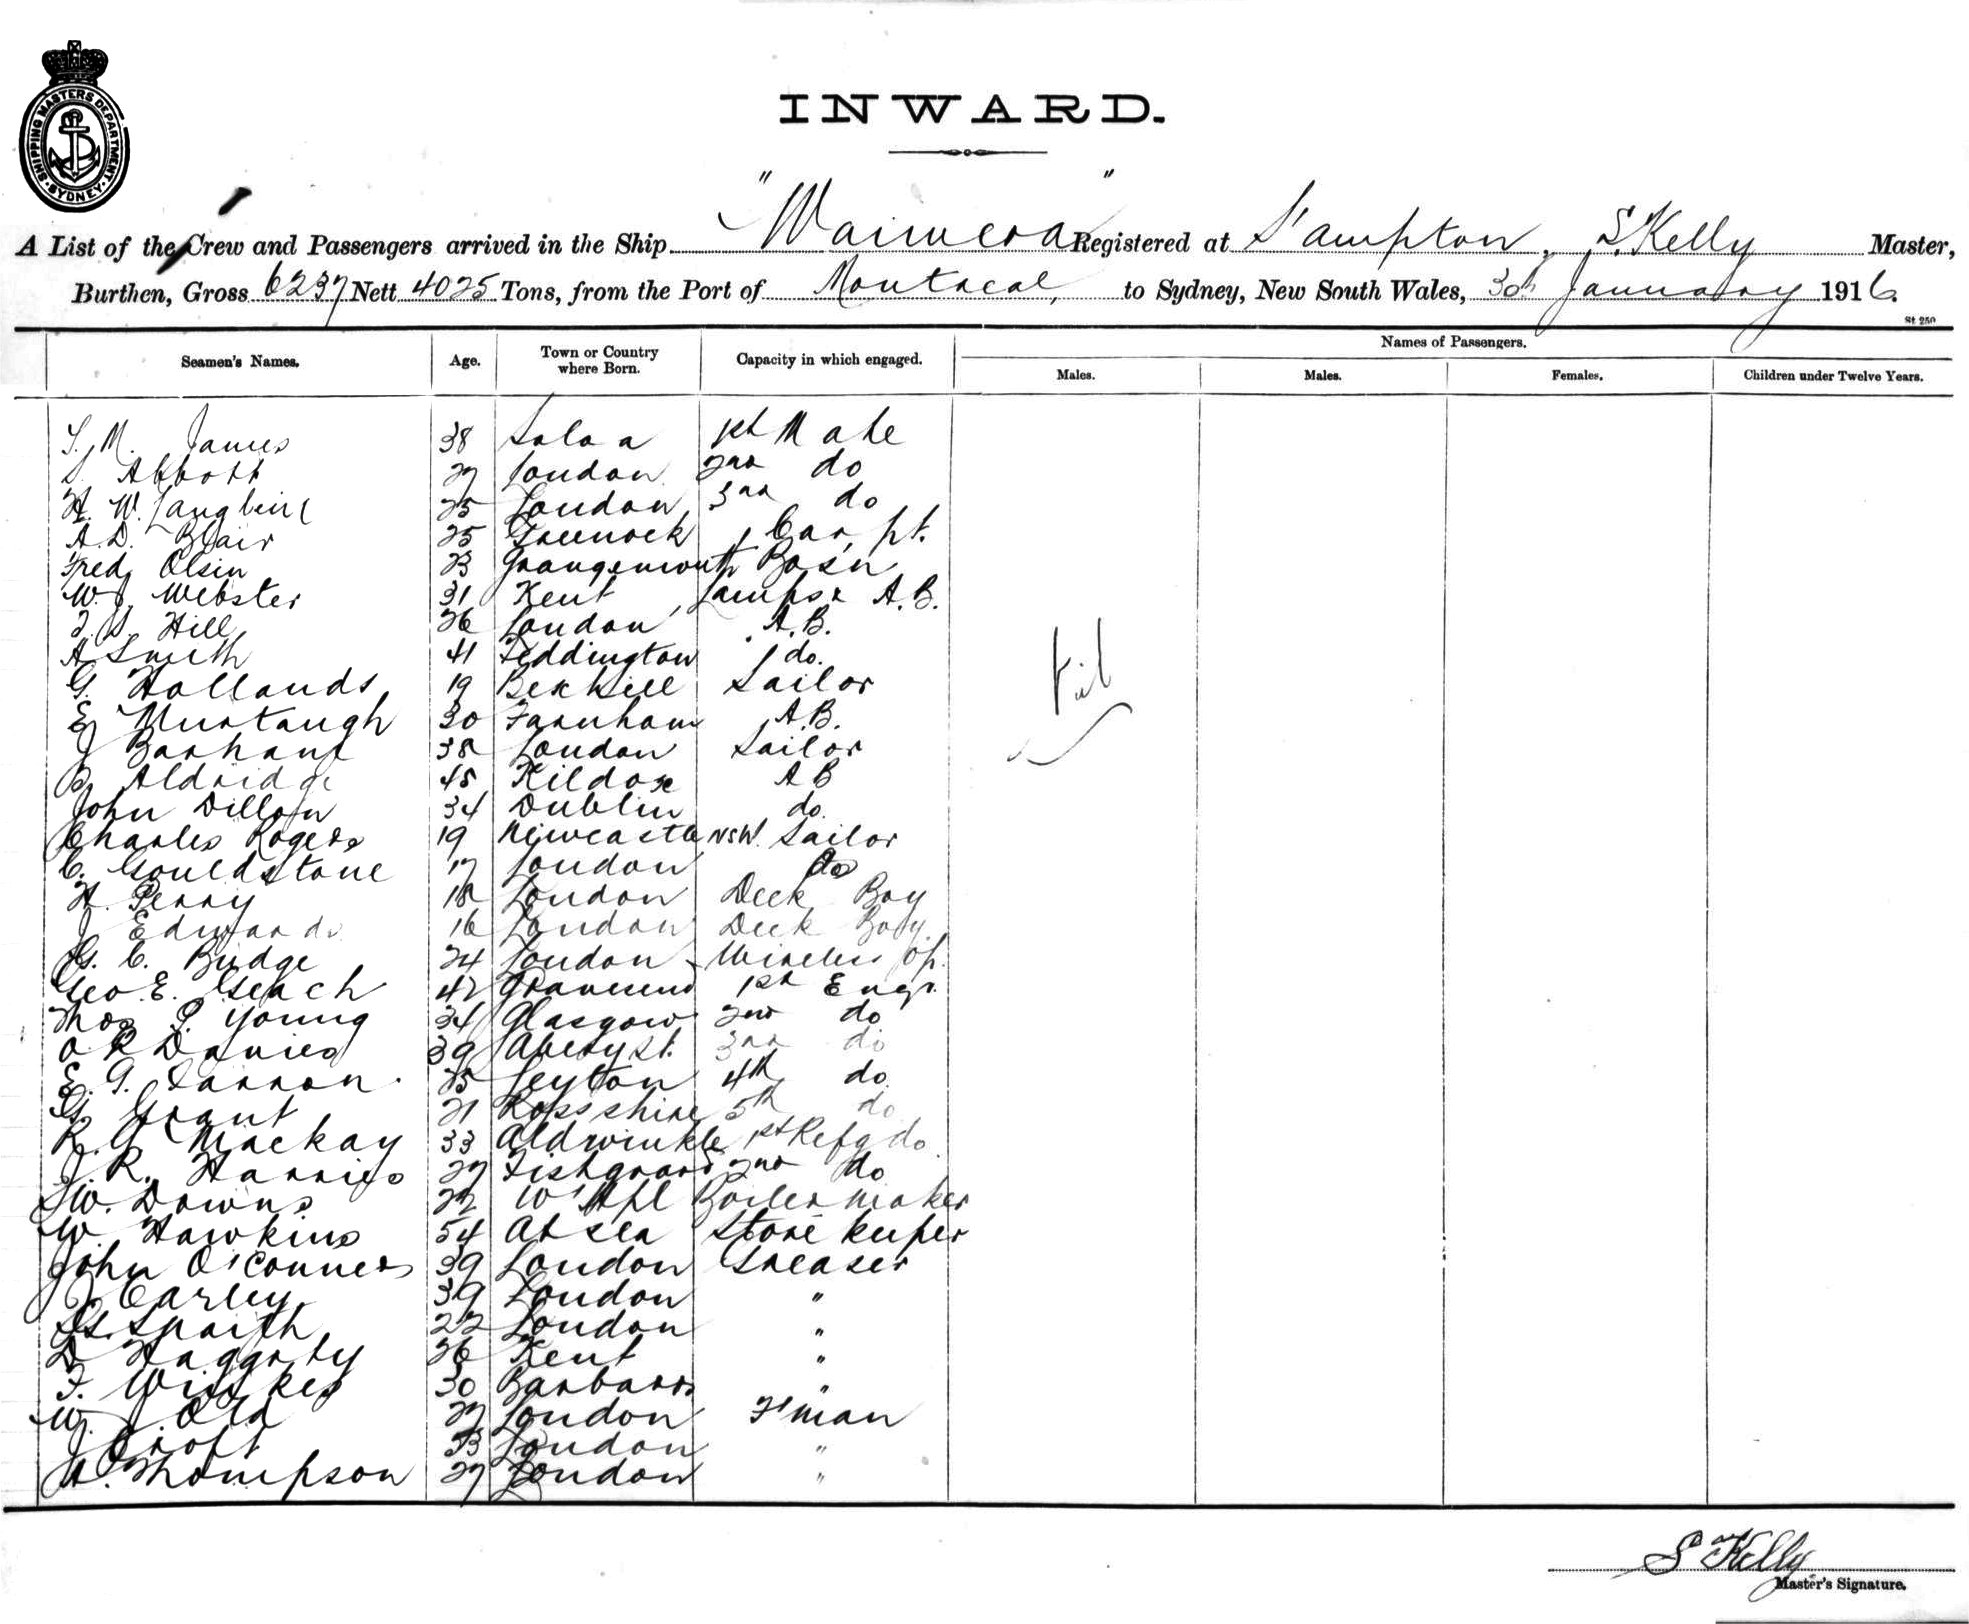 SHIPPING MASTERS DEPARTMENT. SYDNEY.
INWARD.
A List of the Crew and Passengers arrived in the Ship "Waimera" Registered at S'ampton, S. Kelly Master,
Burthen, Gross 6237 Nett 4025 Tons, from the Port of Montreal, to Sydney, New South Wales, 30th January 1916.
St 250
Seamen's Names. Age. Town or Country where Born. Capacity in which engaged. Names of Passengers.
Males. Males. Females. Children under Twelve Years.
M. James 38 1st Mate
Abbott 27 London 2nd do
H. W. 25 London 3rd do
A. D. Blair 25 Greenock Carpt.
Fred Olsen 23 Grangemouth Bos'n
W. J. Webster 31 Kent Lamps & A.B.
Hill 26 London A.B.
A Smith 41 Teddington do.
G. Hollands 19 Bexhill Sailor
E Murtaugh 30 Farnham A.B.
J 38 London Sailor
B Aldridge 45 Kildare A B
John Dillon 34 Dublin do.
Charles Rogers 19 Newcastle NSW. Sailor
C. Gouldstone 17 London do
H. Perry 18 London Deck Boy
J Edwards 16 London Deck Boy.
G. C. Budge 24 London Wireless Op.
Geo. E. Geach 42 Gravesend 1st Engr.
Thos P. Young 34 Glasgow 2nd do
O R Davies 39 Aberyst. 3rd do
E. G. Farron. 25 Leyton 4th do
G. Grant 21 Ross shire 5th do
R. G. Mackay 33 Aldwinkle 1st Refg do
J. R. Harries 27 Fishguard 2nd do
W. Downs 22 W' Hpl Boilermaker
W. Hawkins 54 At sea Store keeper
John O'Conners 39 London Greaser
J Carley 39 London "
G. Spaith 22 London "
D Haggerty 26 Kent "
F. 30 "
W. J. Old 27 London F'man
J Croft 23 London "
A. Thompson 27 London "
S Kelly
Master's Signature.